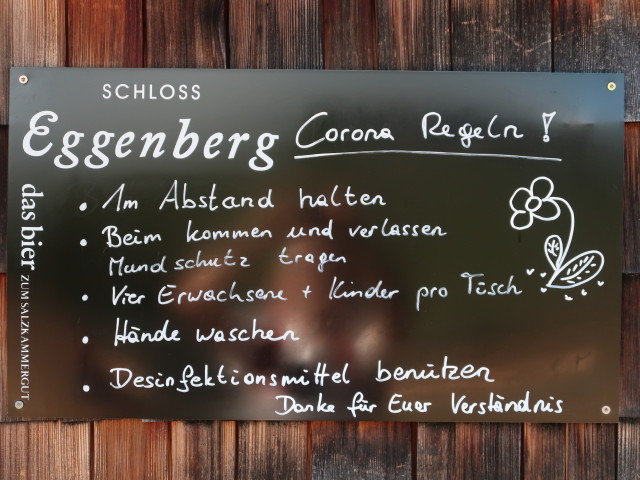 SCHLOSS
Eggenberg
das bier ZUM SALZKAMMERGUT
Corona Regeln!
• 1m Abstand halten
• Beim kommen und verlassen
Mundschutz tragen
• Vier Erwachsene + Kinder pro Tisch
• Hände waschen
• Desinfektionsmittel benützen
Danke für Euer Verständnis